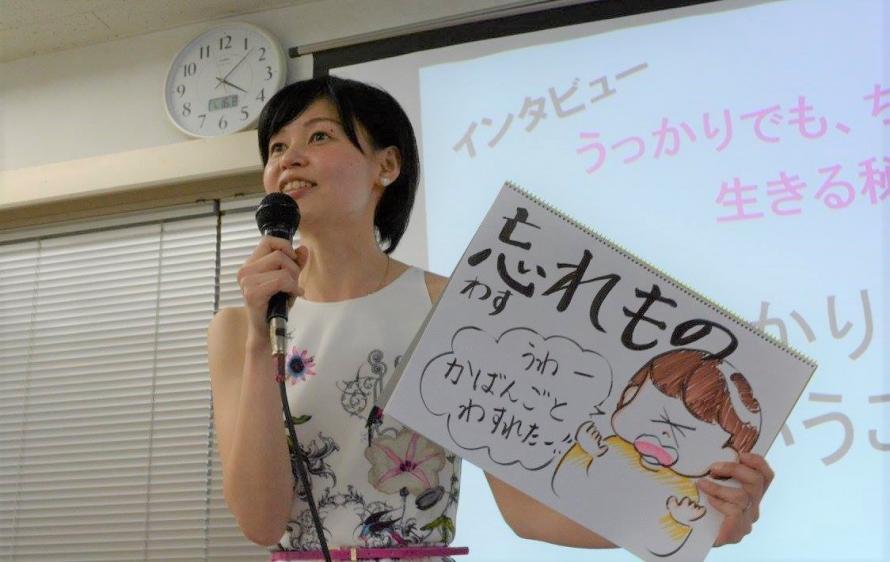 12
1
2
3
4
5
6
7
8
9
10
11
インタビュー
うっかりでも、ち
生きる秘
かり
いうこ
忘れもの
わす
うわー
かばんごと
わすれたー